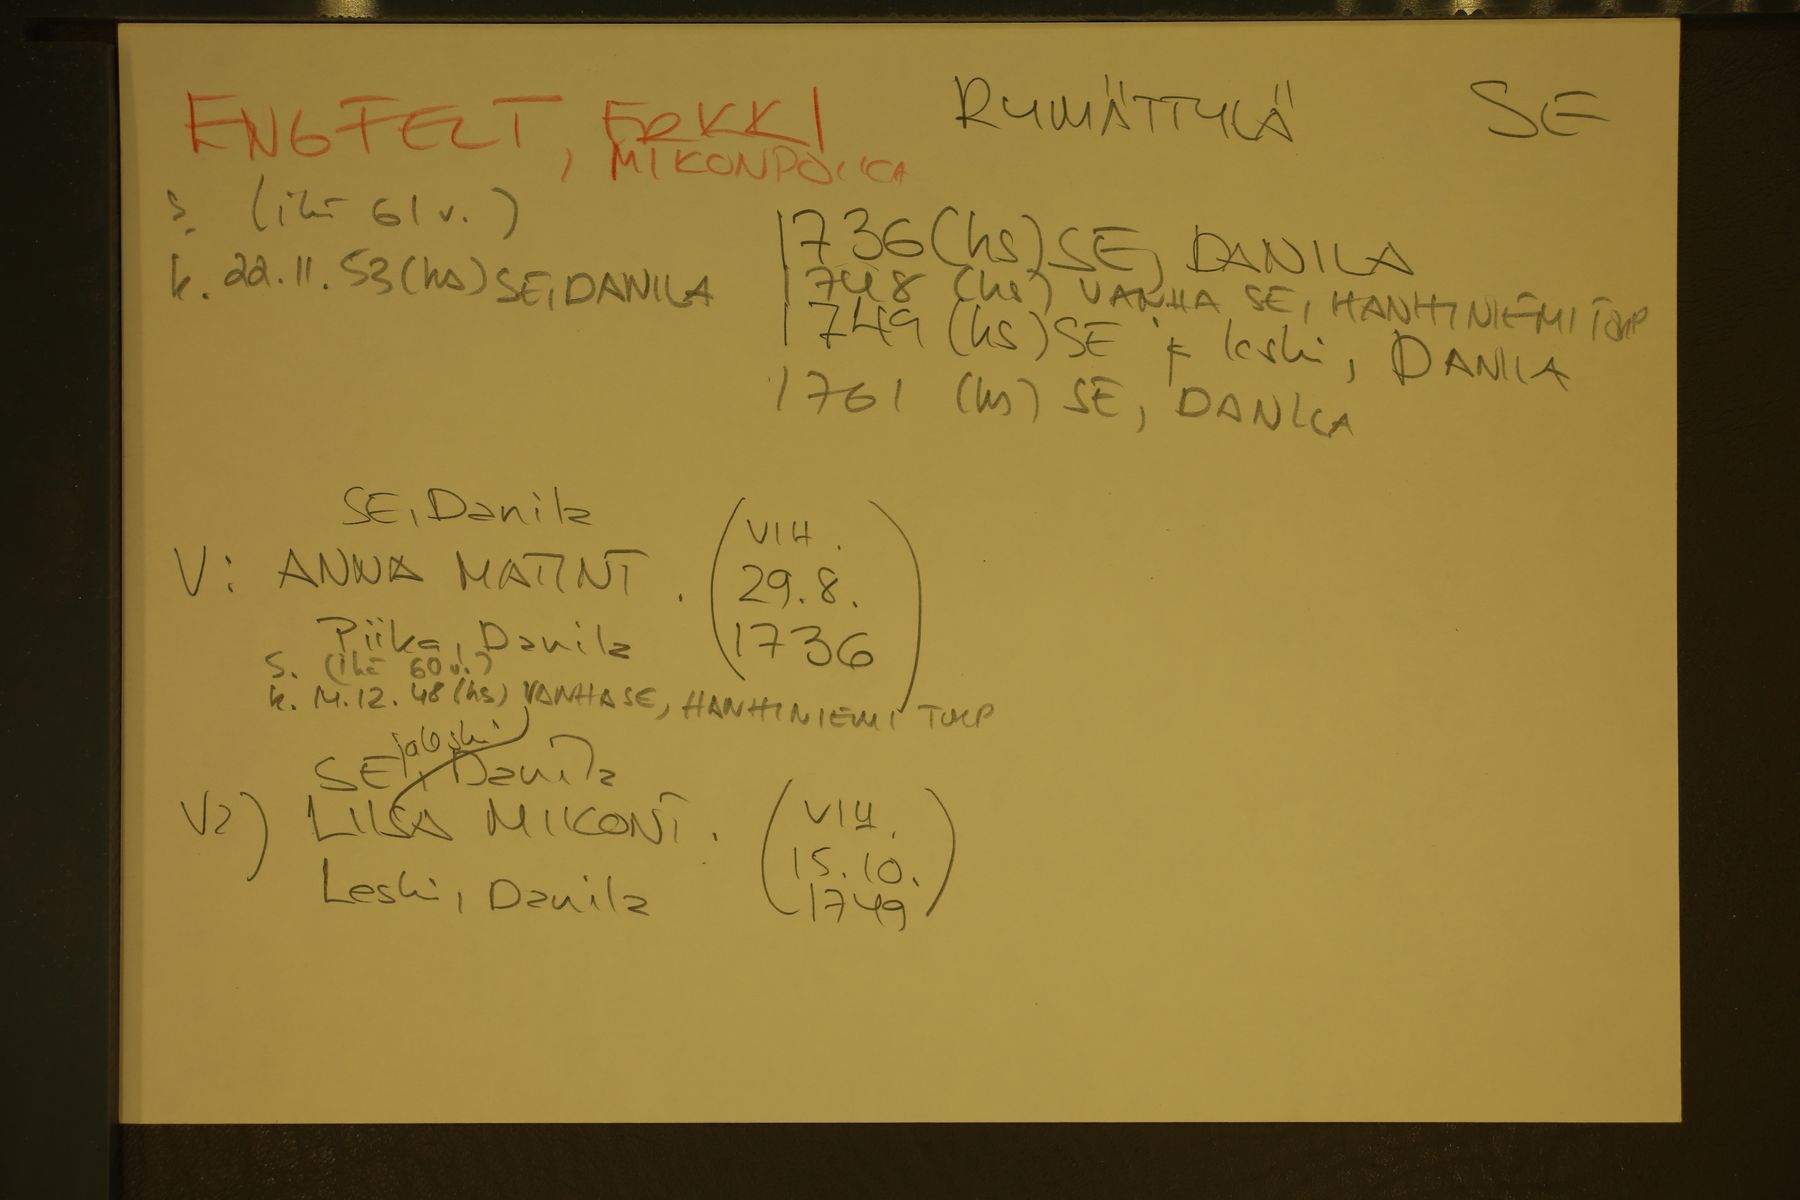 ENGFELT, ERKKI RYMÄTTYLÄ SE
MIKONPOIKA
s. (ikä 61 v.)
k. 22.11.53 (hs) SE, DANILA
1736 (hs) SE, DANILA
1748 (hs) VANHA SE, HANHINIEMI TORP
1749 (hs) SE ja leski, DANILA
1761 (hs) SE, DANILA
SE, Danila
V: ANNA MATINT. (VIH. 29.8. 1736)
Piika, Danila
s. (ikä 60 v.)
k. 14.12.48 (hs) VANHA SE, HANHINIEMI TORP
ja leski
SE, Danila
V2) LIISA MIKONT. (VIH. 15.10. 1749)
Leski, Danila